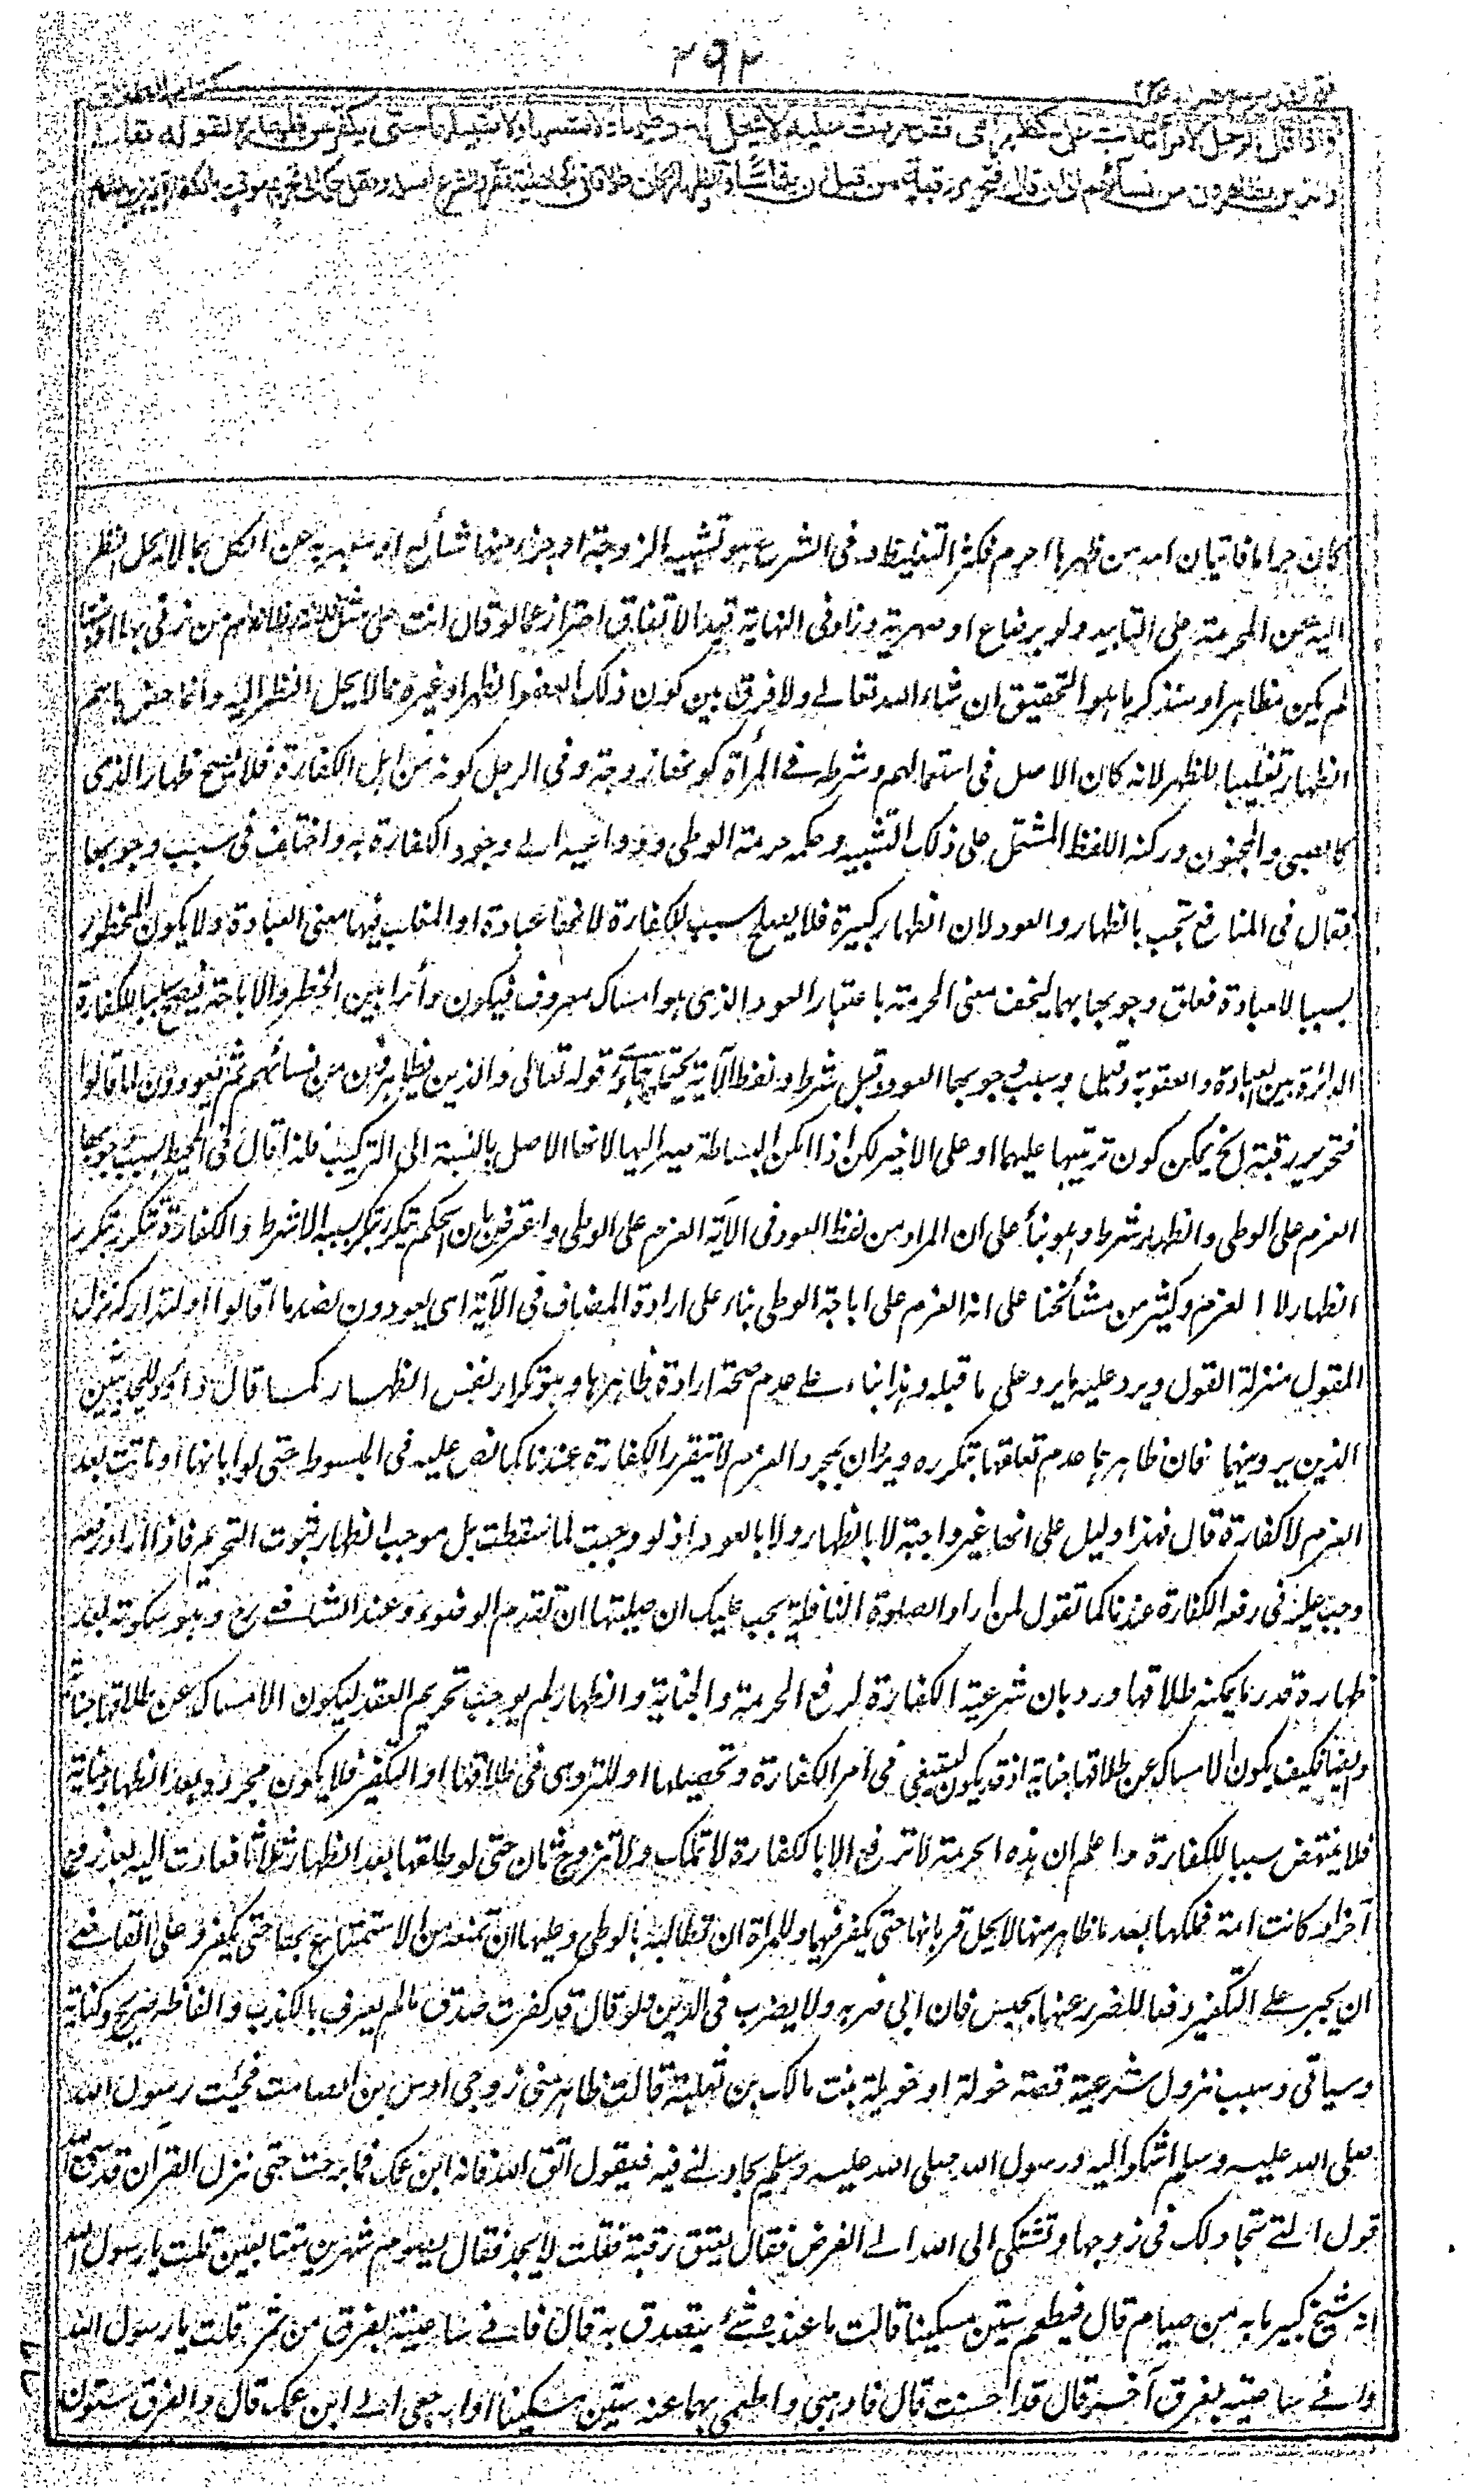 ٢٩٢
كتاب الطلاق
واذا قال الرجل لامرأته انت علي كظهر امي فقد حرمت عليه لا يحل له وطيها ولا مسها ولا تقبيلها حتى يكفر عن ظهاره لقوله تعالى
والذين يظاهرون من نسائهم الى ان قال فتحرير رقبة من قبل ان يتماسا والظهار كان طلاقا في الجاهلية فقرر الشرع اصله ونقل حكمه الى تحريم موقت بالكفارة غير مزيل
كان حراما فاتيان امه من ظهرها احرم فكثر التغليظ وفى الشرع هو تشبيه الزوجة او جزء منها شائع او معبر به عن الكل بما لا يحل النظر
اليه من المحرمة على التابيد ولو برضاع او صهرية وزاد فى النهاية قيد الاتفاق احترازا عما لو قال انت على مثل فلانة وفلانة ام من زنى بها او بنتها
لم يكن مظاهرا وسنذكر ما هو التحقيق ان شاء الله تعالى ولا فرق بين كون ذلك العضو الظهر او غيره مما لا يحل النظر اليه وانما خص باسم
الظهار تغليبا للظهر لانه كان الاصل فى استعمالهم وشرطه فى المرأة كونها زوجة وفى الرجل كونه من اهل الكفارة فلا يصح ظهار الذمى
كالصبى والمجنون وركنه اللفظ المشتمل على ذلك التشبيه وحكمه حرمة الوطى ودواعيه الى وجود الكفارة به واختلف فى سبب وجوبها
فقال فى المنافع تجب بالظهار والعود لان الظهار كبيرة فلا يصلح سببا للكفارة لانها عبادة او المغلب فيها معنى العبادة ولا يكون المحظور
سببا للعبادة فعلق وجوبها بهما ليخف معنى الحرمة باعتبار العود الذى هو امساك بمعروف فيكون دائرا بين الحظر والاباحة فيصح سببا للكفارة
الدائرة بين العبادة والعقوبة وقيل سبب وجوبها العود وقبل شرط ولفظ الآية يحتملهما وهو قوله تعالى والذين يظاهرون من نسائهم ثم يعودون لما قالوا
فتحرير رقبة الخ يمكن كون ترتيبها عليهما او على الاخير لكن اذا امكن البساطة صير اليها لانها الاصل بالنسبة الى التركيب فلذا قال فى المحيط سبب وجوبها
العزم على الوطى والظهار شرط وهو بناء على ان المراد من لفظ العود فى الآية العزم على الوطى واعترض بان الحكم يتكرر بتكرر سببه لا شرطه والكفارة تتكرر بتكرر
الظهار لا العزم وكثير من مشائخنا على انه العزم على اباحة الوطى بناء على ارادة المضاف فى الآية اى يعودون لضد ما قالوا او لتداركه نزل
المقول منزلة القول ويرد عليه ما يرد على ما قبله وهذا بناء على عدم صحة ارادة ظاهرها وهو تكرار نفس الظهار كما قال داؤد للحديثين
الذين يرويهما فان ظاهرهما عدم تعلقها بتكرره ويرد ان بمجرد العزم لا تتقرر الكفارة عندنا كما نص عليه فى المبسوط حتى لو ابانها او ماتت بعد
العزم لا كفارة قال فهذا دليل على انها غير واجبة لا بالظهار ولا بالعود اذ لو وجبت لما سقطت بل موجب الظهار ثبوت التحريم فاذا اراد رفعه
وجب عليه فى رفعه الكفارة عندنا كما تقول لمن اراد الصلوة النافلة يجب عليك ان صليتها ان تقدم الوضوء وعند الشافعى رح وهو سكوته بعد
ظهاره قدر ما يمكنه طلاقها ورد بان شرعية الكفارة لرفع الحرمة والجناية والظهار لم يوجب تحريم العقد ليكون الامساك عن طلاقها جناية
وايضا فكيف يكون الامساك عن طلاقها جناية اذ قد يكون ليتبقى فى امر الكفارة وتحصيلها او للتروى فى طلاقها او التكفير فلا يكون مجرده بعد الظهار جناية
فلا ينتهض سببا للكفارة واعلم ان هذه الحرمة لا ترتفع الا بالكفارة لا بملك ولا بتزوج ثان حتى لو طلقها بعد الظهار ثلاثا فعادت اليه بعد زوج
آخر او كانت امة فملكها بعد ما ظاهر منها لا يحل قربانها حتى يكفر فيهما وللمرأة ان تطالبه بالوطى وعليها ان تمنعه من الاستمتاع بها حتى يكفر وعلى القاضى
ان يجبره على التكفير دفعا للضرر عنها بحبس فان ابى ضربه ولا يضرب فى الدين ولو قال قد كفرت صدق ما لم يعرف بالكذب والفاظه صريح وكناية
وسياتى وسبب نزول شرعيته قصة خولة او خويلة بنت مالك بن ثعلبة قالت ظاهر منى زوجى اوس بن الصامت فجئت رسول الله
صلى الله عليه وسلم اشكو اليه ورسول الله صلى الله عليه وسلم يجادلنى فيه فيقول اتق الله فانه ابن عمك فما برحت حتى نزل القرآن قد سمع الله
قول التى تجادلك فى زوجها وتشتكى الى الله الى الفرض فقال يعتق رقبة فقلت لا يجد فقال يصوم شهرين متتابعين قلت يا رسول الله
انه شيخ كبير ما به من صيام قال فيطعم ستين مسكينا قالت ما عنده شئ يتصدق به قال فانى ساعينه بفرق من تمر قلت يا رسول الله
وانى ساعينه بفرق آخر قال قد احسنت قال فاذهبى واطعمى بهما عنه ستين مسكينا وارجعى الى ابن عمك قال والفرق ستون